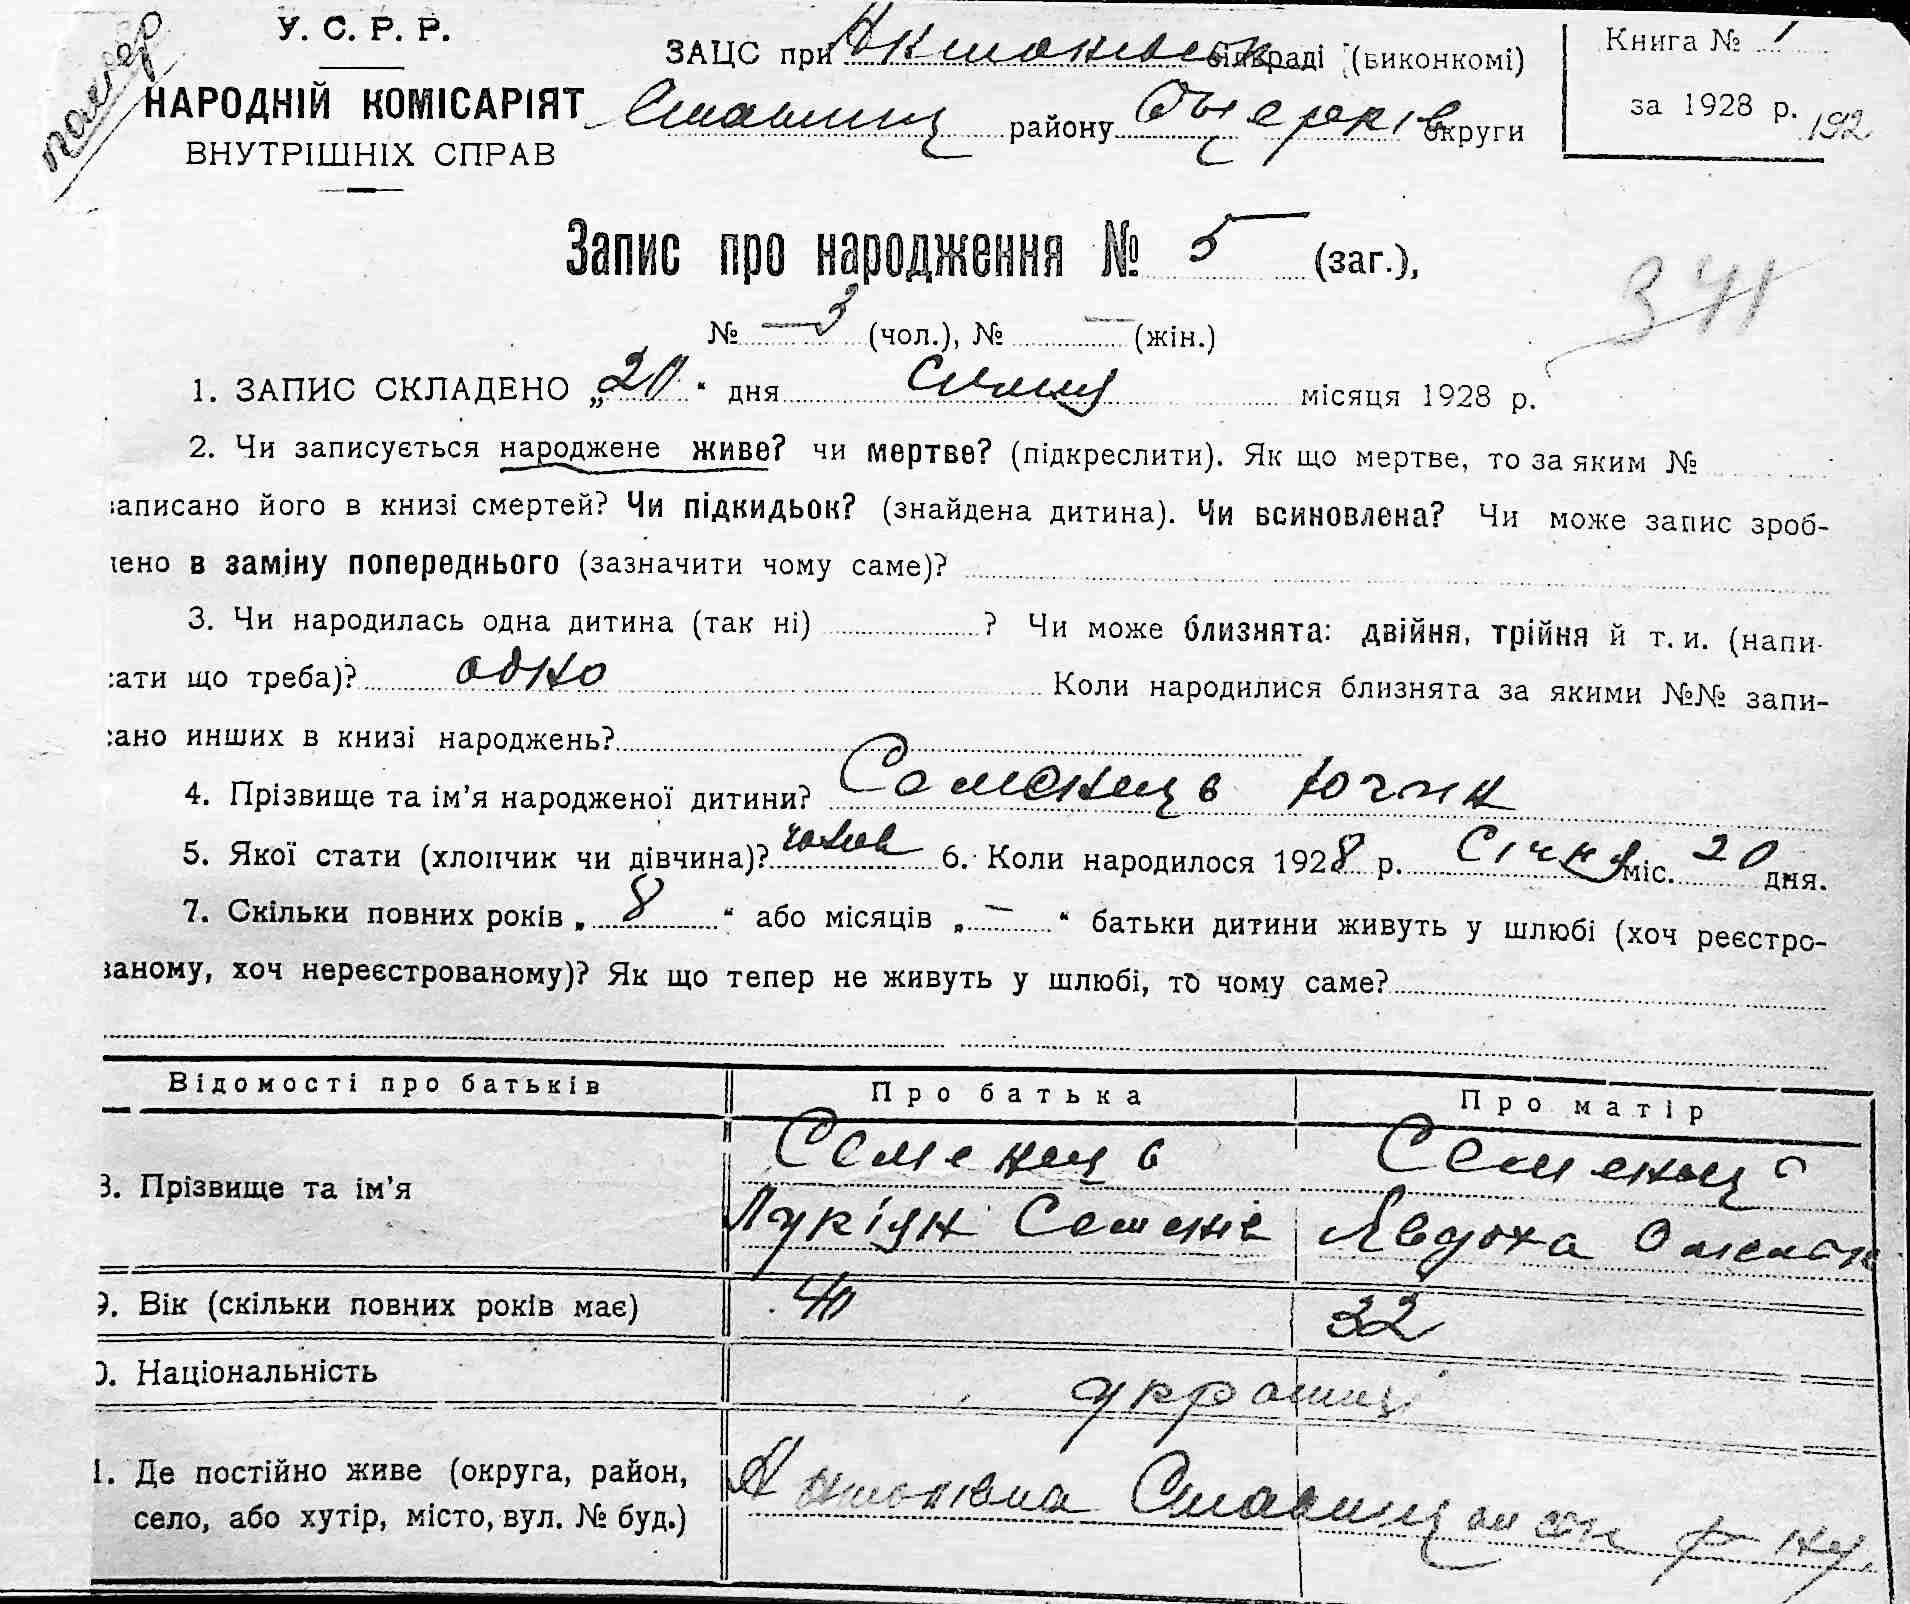 помер
У. С. Р. Р.
НАРОДНІЙ КОМІСАРІЯТ
ВНУТРІШНІХ СПРАВ
ЗАЦС при сільраді (виконкомі)
району округи
Книга № 1
за 1928 р.
192
Запис про народження № 5 (заг.),
341
№ 3 (чол.), № — (жін.)
1. ЗАПИС СКЛАДЕНО „20“ дня місяця 1928 р.
2. Чи записується народжене живе? чи мертве? (підкреслити). Як що мертве, то за яким №
записано його в книзі смертей? Чи підкидьок? (знайдена дитина). Чи всиновлена? Чи може запис зроб-
лено в заміну попереднього (зазначити чому саме)?
3. Чи народилась одна дитина (так ні) ? Чи може близнята: двійня, трійня й т. и. (напи-
сати що треба)? одно Коли народилися близнята за якими №№ запи-
сано инших в книзі народжень?
4. Прізвище та ім’я народженої дитини? Семенців
5. Якої стати (хлопчик чи дівчина)? чолов 6. Коли народилося 1928 р. Січня міс. 20 дня.
7. Скільки повних років „8“ або місяців „—“ батьки дитини живуть у шлюбі (хоч реєстро-
ваному, хоч нереєстрованому)? Як що тепер не живуть у шлюбі, то чому саме?
Відомості про батьків Про батька Про матір
8. Прізвище та ім’я Семенців Семенців
Лукіян Семенів Явдоха
9. Вік (скільки повних років має) 40 32
10. Національність українці
11. Де постійно живе (округа, район,
село, або хутір, місто, вул. № буд.) р-ну